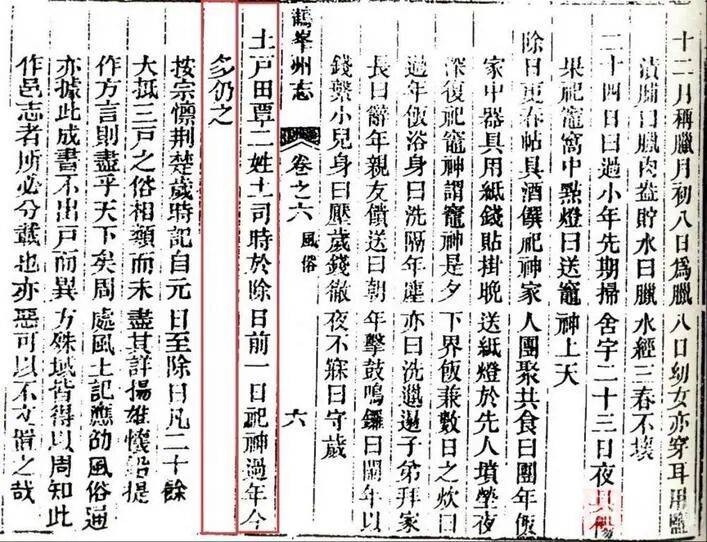 十二月稱臘月初八日爲臘八日幼女亦穿耳用鹽
漬脯曰臘肉盎貯水曰臘水經三春不壞
二十四日曰過小年先期掃舍宇二十三日夜具餳
果祀竈窩中點燈曰送竈神上天
除日更春帖具酒饌祀神家人團聚共食曰團年飯
家中器具用紙錢貼掛晚送紙燈於先人墳塋夜
深復祀竈神謂竈神是夕下界飯兼數日之炊曰
過年飯浴身曰洗隔年塵亦曰洗邋遢子弟拜家
長曰辭年親友饋送曰朝年擊鼓鳴鑼曰鬧年以
錢繫小兒身曰壓歲錢徹夜不寐曰守歲
鶴峯州志 卷之六 風俗 六
土戶田覃二姓土司時於除日前一日祀神過年今
多仍之
按宗懔荆楚歲時記自元日至除日凡二十餘
大抵三戶之俗相類而未盡其詳揚雄懷鉛提
作方言則盡乎天下矣周處風土記應劭風俗通
亦據此成書不出戶而異方殊域皆得以周知此
作邑志者所必分載也亦惡可以不文借之哉